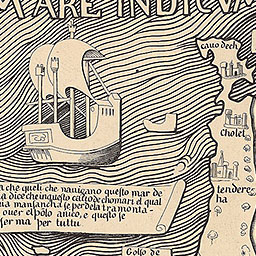 MARE INDICVM
cavo dech
cholet
tendere
ha
a che queli che navicano questo mar de
a dice che in questo cavo de chomari el qual
ua mansancha se perde la tramonta-
ouer el polo antico, e questo se
for ma per tuttu
Golfo de